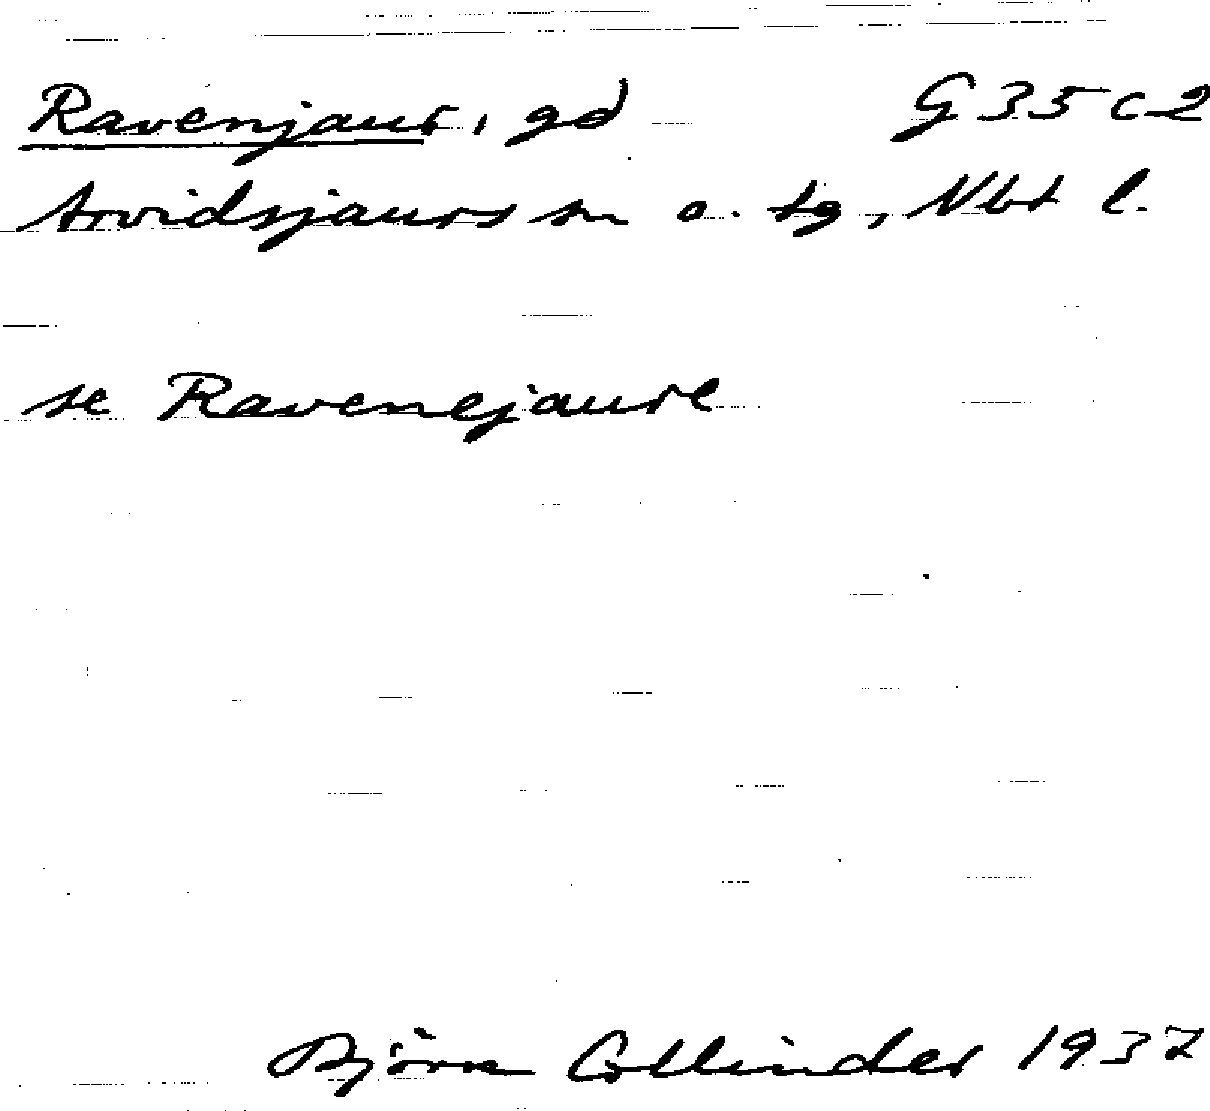 Ravenjaur, gd G 35 c 2
Arvidsjaurs sn o. tg, Nbt l.
se Ravenejaure
Björn Collinder 1937